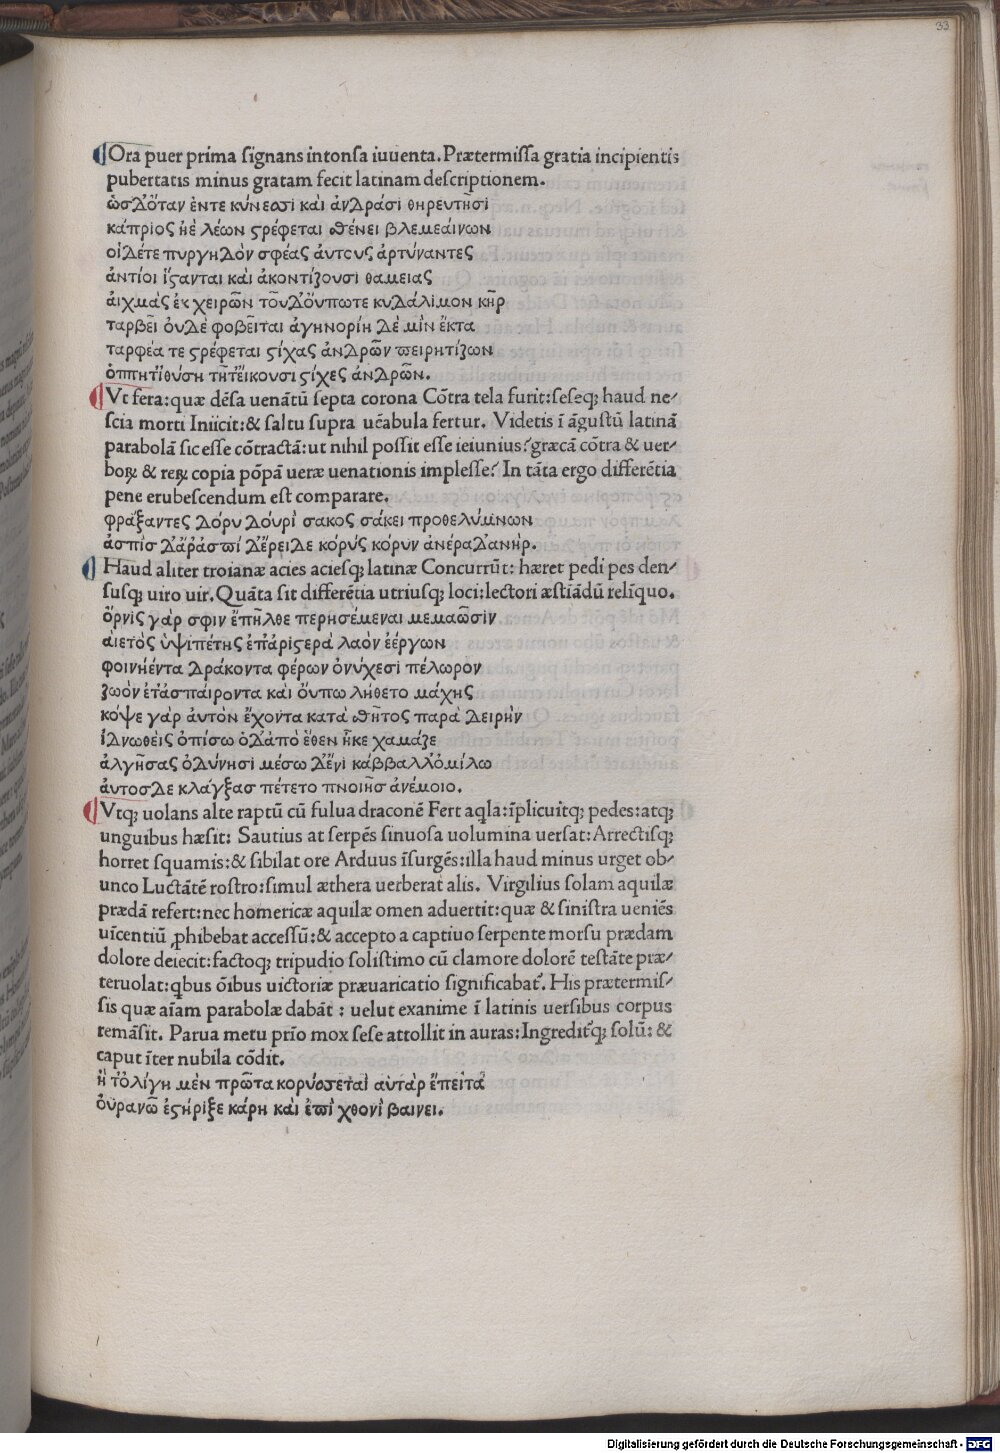 33
Ora puer prima signans intonsa iuuenta. Prætermissa gratia incipientis
pubertatis minus gratam fecit latinam descriptionem.
ὡσΔὍταν ἐντε κύνεσσι καὶ ἀνΔράσι θηρευτῆσι
κάπριος ἠὲ λέων ϛρέφεται σθένει βλεμεαίνων
οἱΔέτε πυργηΔὸν σφέας ἀυτοὺς ἀρτύναντες
ἀντίοι ἵϛανται καὶ ἀκοντίζουσι θαμειας
ἀιχμὰς ἐκ χειρῶν τοῦΔὄυπωτε κυΔάλιμον κῆρ
ταρβεῖ ὀυΔὲ φοβεῖται ἀγηνορίη Δέ μὶν ἔκτα
ταρφέα τε ϛρέφεται ϛίχας ἀνΔρῶν πειρητίζων
ὁππητἰθύση τῆτἔικουσι ϛίχες ἀνΔρῶν.
Vt fera: quæ dẽsa uenãtũ septa corona Cõtra tela furit: seseq; haud ne⸗
scia morti Iniicit: & saltu supra uẽabula fertur. Videtis ĩ ãgustũ latinã
parabolã sic esse cõtractã: ut nihil possit esse ieiunius? græcã cõtra & uer⸗
boꝝ & reꝝ copia põpã ueræ uenationis implesse? In tãta ergo differẽtia
pene erubescendum est comparare.
φράξαντες Δόρυ Δόυρὶ σακος σάκει προθελύμνων
ἀσπὶσ Δ'ἄρ'ἀσπί Δ'ἔρειΔε κόρυς κόρυν ἀνέραΔ'ανὴρ.
Haud aliter troianæ acies aciesq; latinæ Concurrũt: hæret pedi pes den⸗
susq; uiro uir. Quãta sit differẽtia utriusq; loci: lectori æstiãdũ relĩquo.
ὄρνὶς γάρ σφιν ἔπῆλθε περησέμεναι μεμαῶσὶν
αἰετὸς ὑψιπέτης ἐπ'ἀρὶϛερὰ λαὸν ἐέργων
φοινήεντα Δράκοντα φέρων ὀνύχεσὶ πέλωρον
ζωὸν ἐτ'ἀσπαίροντα καὶ ὄυπω λήθετο μάχης
κόψε γὰρ ἀυτὸν ἔχοντα κατὰ στῆτος παρὰ Δειρὴν
ἰΔνωθεὶς ὀπίσω ὁΔ'ἀπὸ ἕθεν ἧκε χαμάζε
ἀλγήσας ὀΔύνησι μέσω Δ'ἐνὶ κάββαλλ'ὁμίλω
ἀυτοσΔὲ κλάγξασ πέτετο πνοιῆσ ἀνέμοιο.
Vtq; uolans alte raptũ cũ fulua draconẽ Fert aq̃la: ĩplicuĩtq; pedes: atq;
unguibus hæsit: Sautius at serpẽs sinuosa uolumina uersat: Arrectisq;
horret squamis: & sibilat ore Arduus ĩsurgẽs: illa haud minus urget ob⸗
unco Luctãtẽ rostro: simul æthera uerberat alis. Virgilius solam aquilæ
prædã refert: nec homericæ aquilæ omen aduertit: quæ & sinistra ueniẽs
uĩcentiũ ꝓhibebat accessũ: & accepto a captiuo serpente morsu prædam
dolore deiecit: factoq; tripudio solistimo cũ clamore dolorẽ testãte præ⸗
teruolat: qbus õibus uictoriæ præuaricatio significabat᷑. His prætermis⸗
sis quæ aĩam parabolæ dabãt : uelut exanime ĩ latinis uersibus corpus
remãsit. Parua metu prĩo mox sese attollit in auras: Ingredit᷑q; solũ: &
caput ĩter nubila cõdit.
ἥ τ'ὀλίγη μὲν πρῶτα κορύσσεται αὐτὰρ ἔπειτα
ὀυρανῶ ἐϛήριξε κάρη καὶ ἐπὶ χθονὶ βαινει.
Digitalisierung gefördert durch die Deutsche Forschungsgemeinschaft - DFG